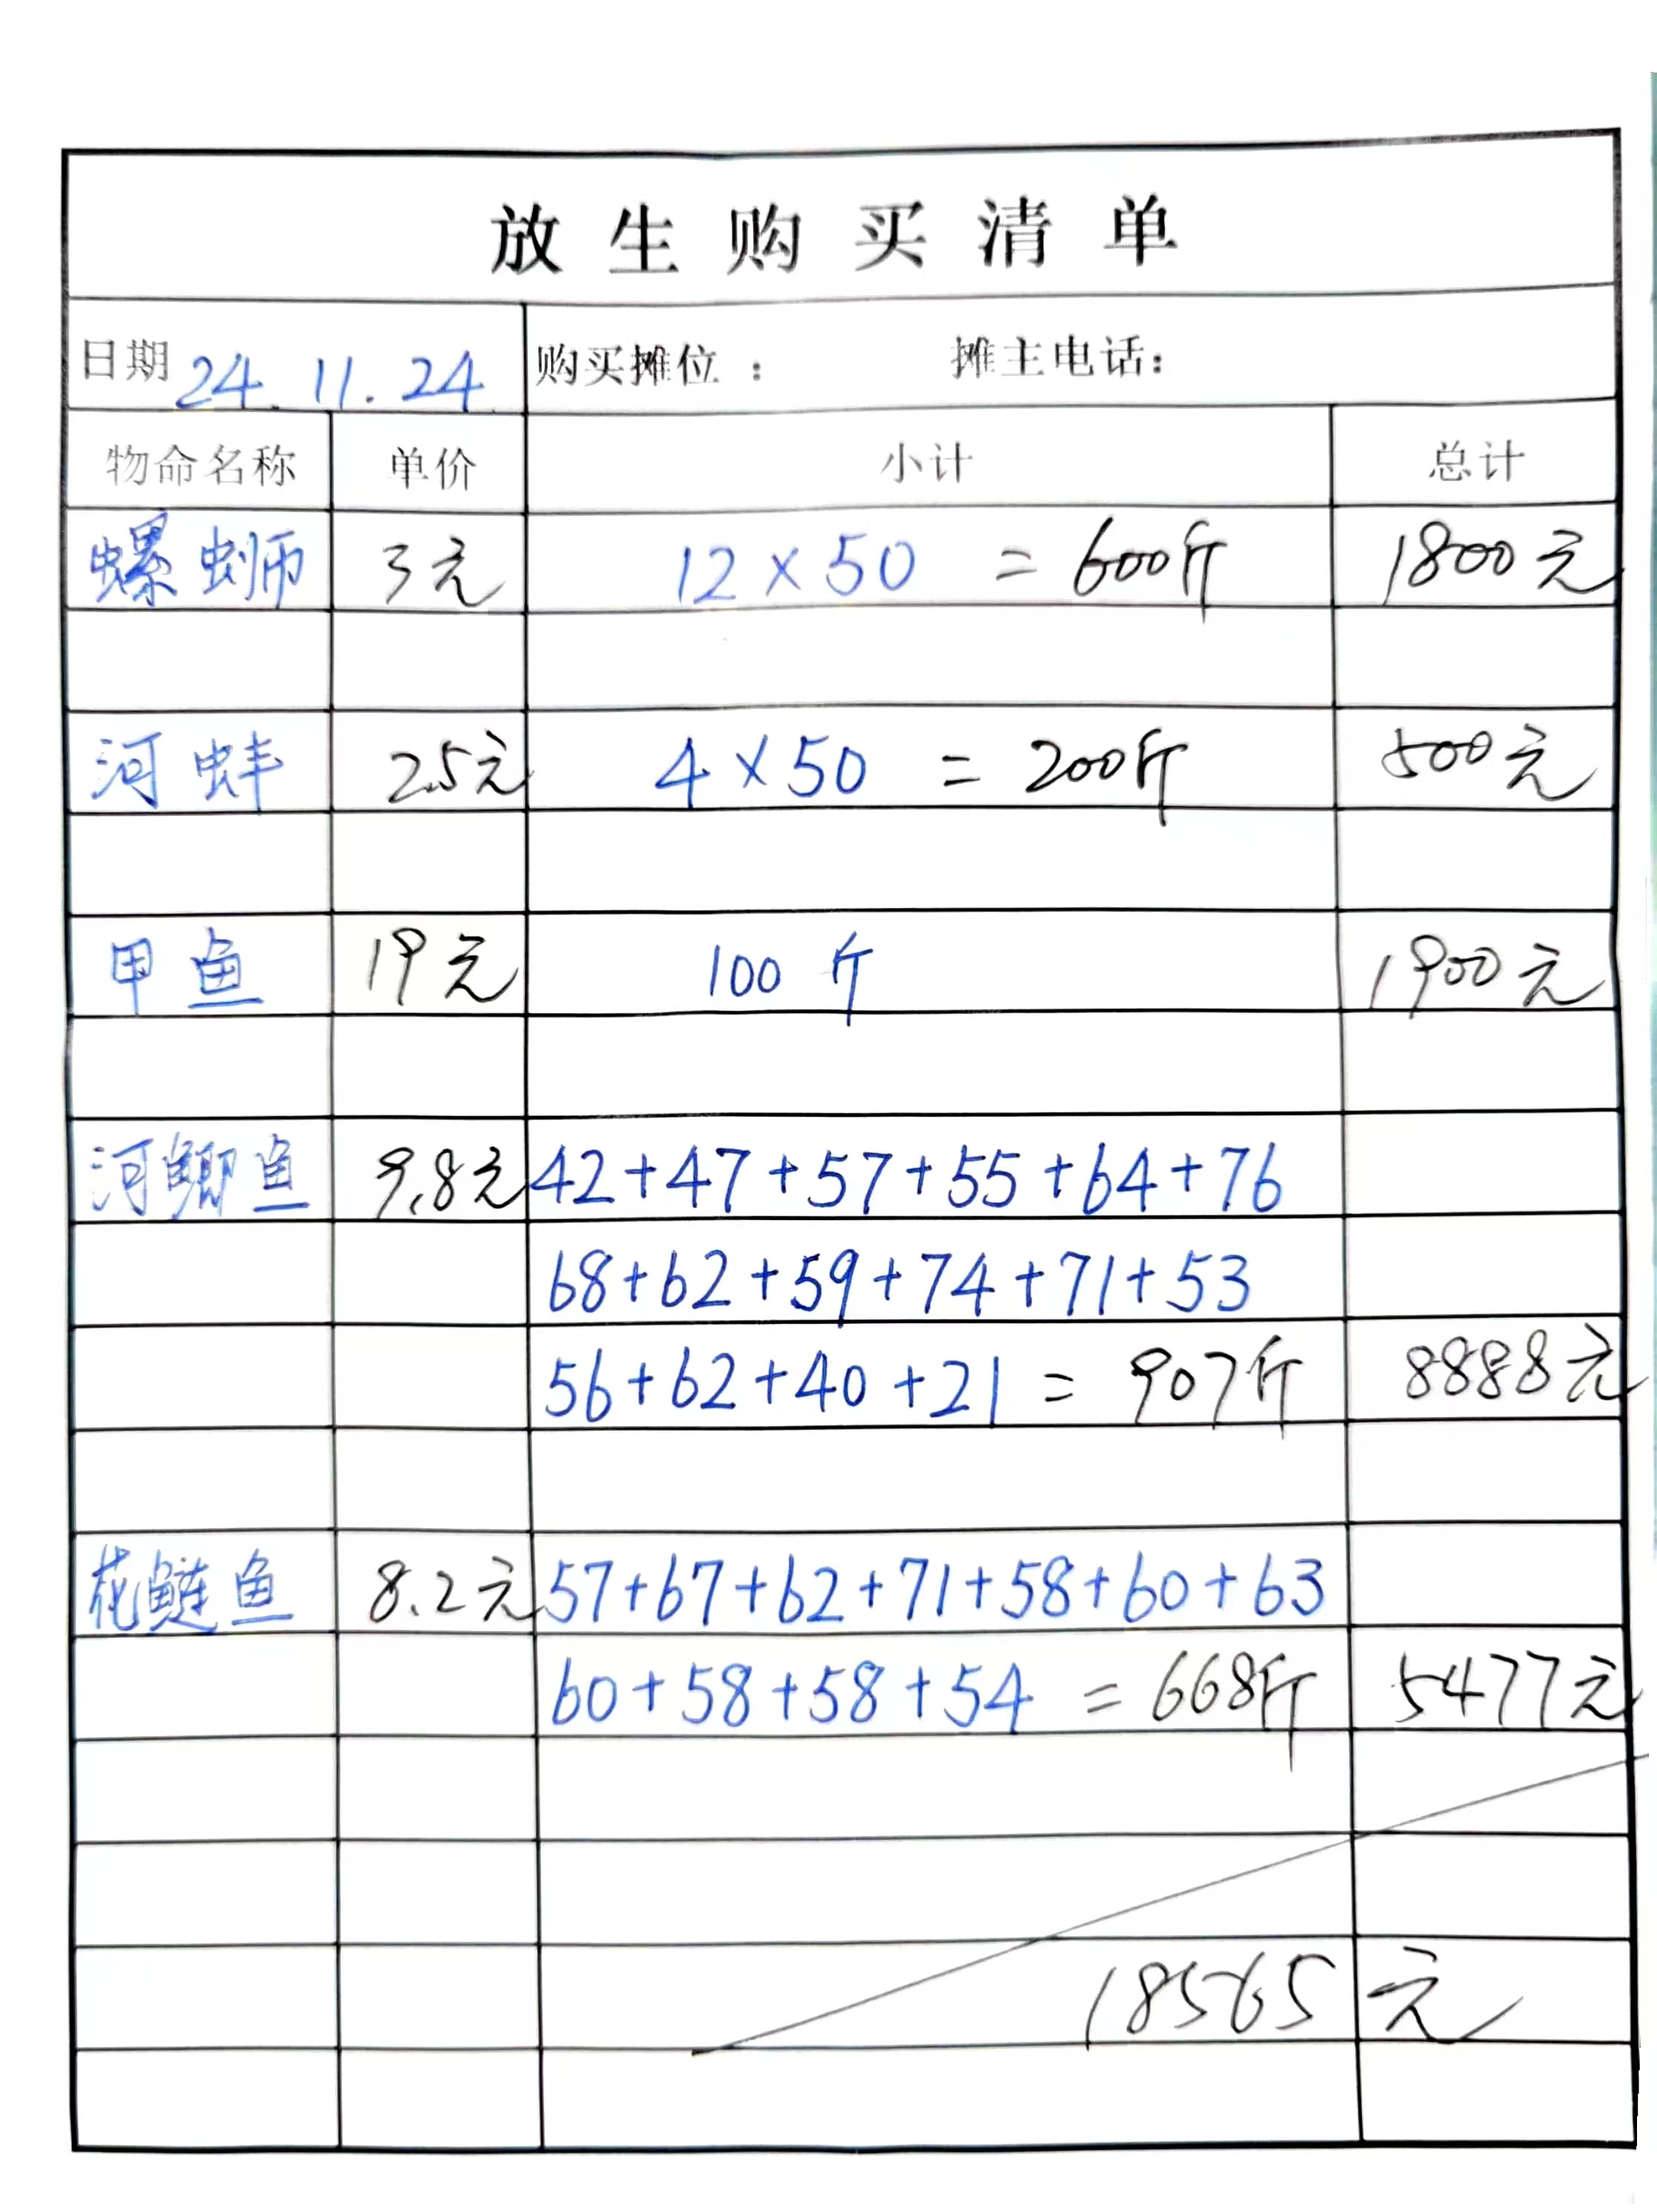 放生购买清单
日期 24.11.24 购买摊位： 摊主电话：
物命名称 单价 小计 总计
螺蛳 3元 12×50 = 600斤 1800元
河蚌 2.5元 4×50 = 200斤 500元
甲鱼 19元 100斤 1900元
河鲫鱼 9.8元 42+47+57+55+64+76
68+62+59+74+71+53
56+62+40+21 = 907斤 8888元
花鲢鱼 8.2元 57+67+62+71+58+60+63
60+58+58+54 = 668斤 5477元
18565元